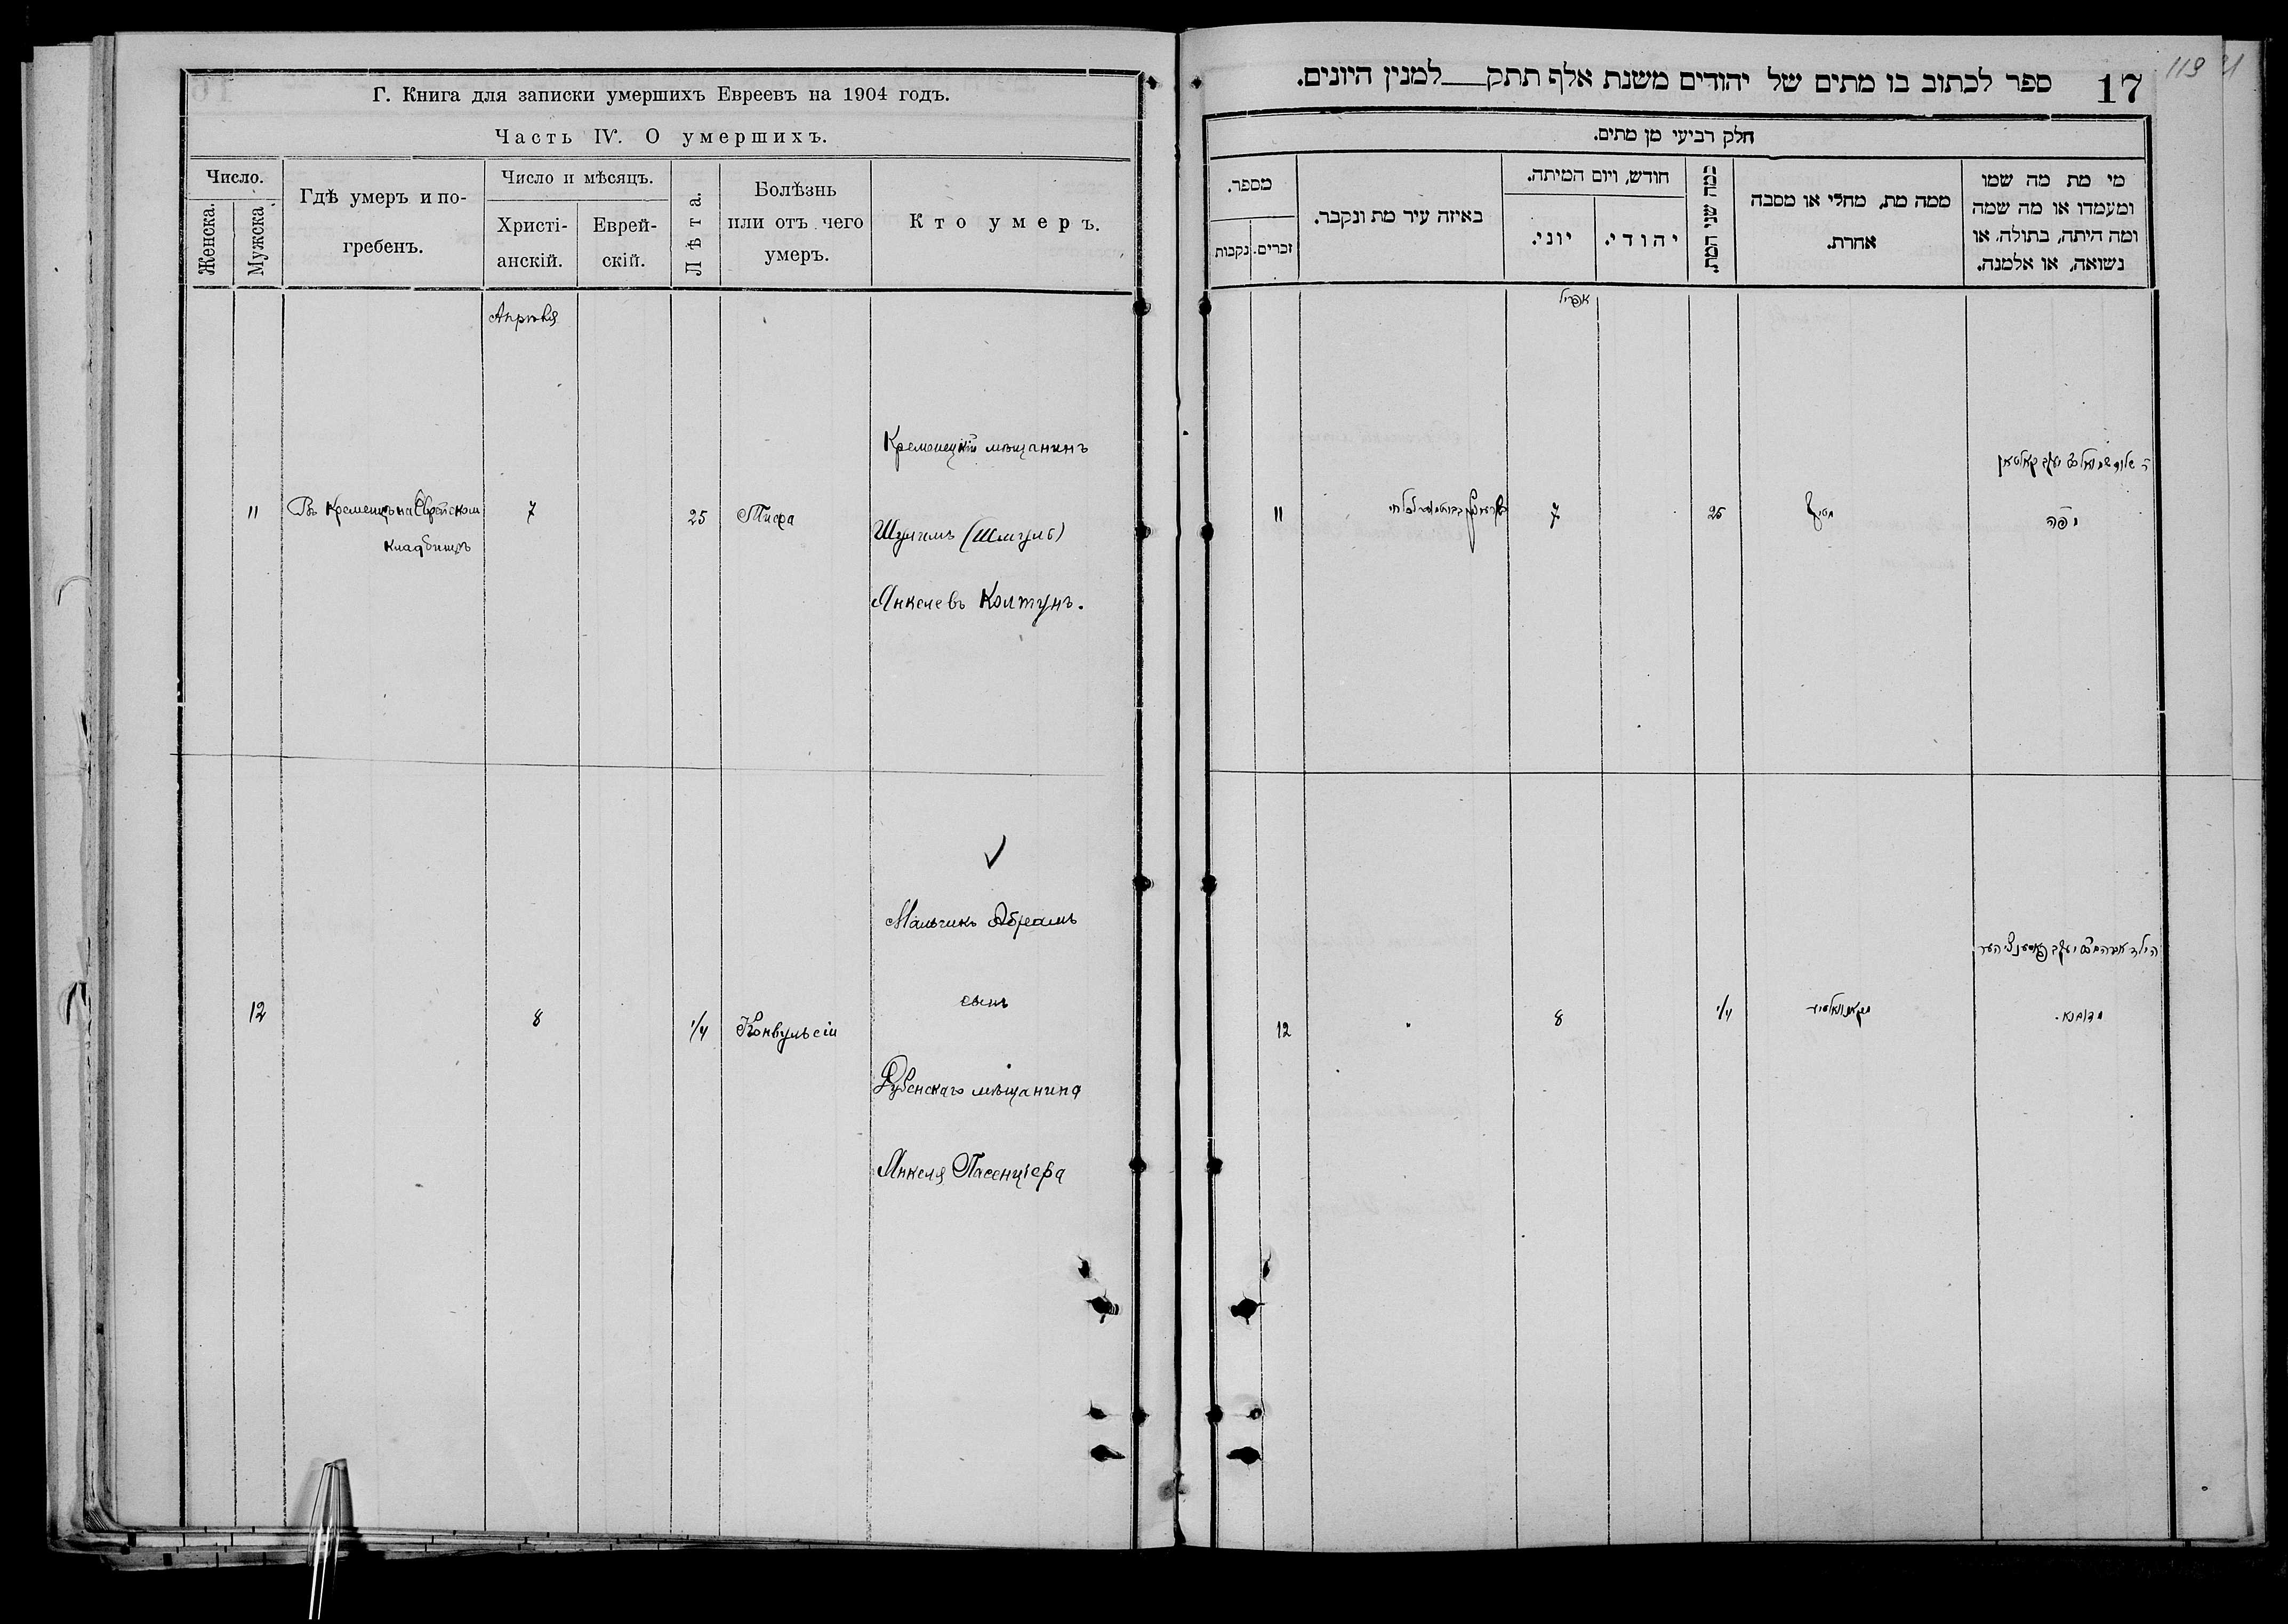 Г. Книга для записки умершихъ Евреевъ на 1904 годъ.
Часть IV. О умершихъ.
Число.
Женска.
Мужска.
Гдѣ умеръ и по-
гребенъ.
Число и мѣсяцъ.
Христі-
анскій.
Еврей-
скій.
Лѣта.
Болѣзнь
или отъ чего
умеръ.
Кто умеръ.
Апрѣля
11
Въ Кременцѣ на Еврейском
кладбищѣ
7
25
Тифа
Кременецкій мѣщанинъ
Шулимъ (Шмуль)
Янкелевъ Колтунъ.
12
8
1/4
Конвульсіи
Мальчикъ Абрамъ
сынъ
Дубенскаго мѣщанина
Янкеля Пасенціера
119
17
ספר לכתוב בו מתים של יהודים משנת אלף תתק למנין היונים.
חלק רביעי מן מתים.
מי מת מה שמו
ומעמדו או מה שמה
ומה היתה, בתולה, או
נשואה, או אלמנה.
ממה מת, מחלי או מסבה
אחרת.
כמה שני המת.
חודש, ויום המיתה.
יהודי.
יוני.
באיזה עיר מת ונקבר.
מספר.
זכרים.
נקבות
אפריל
11
7
25
12
8
1/4